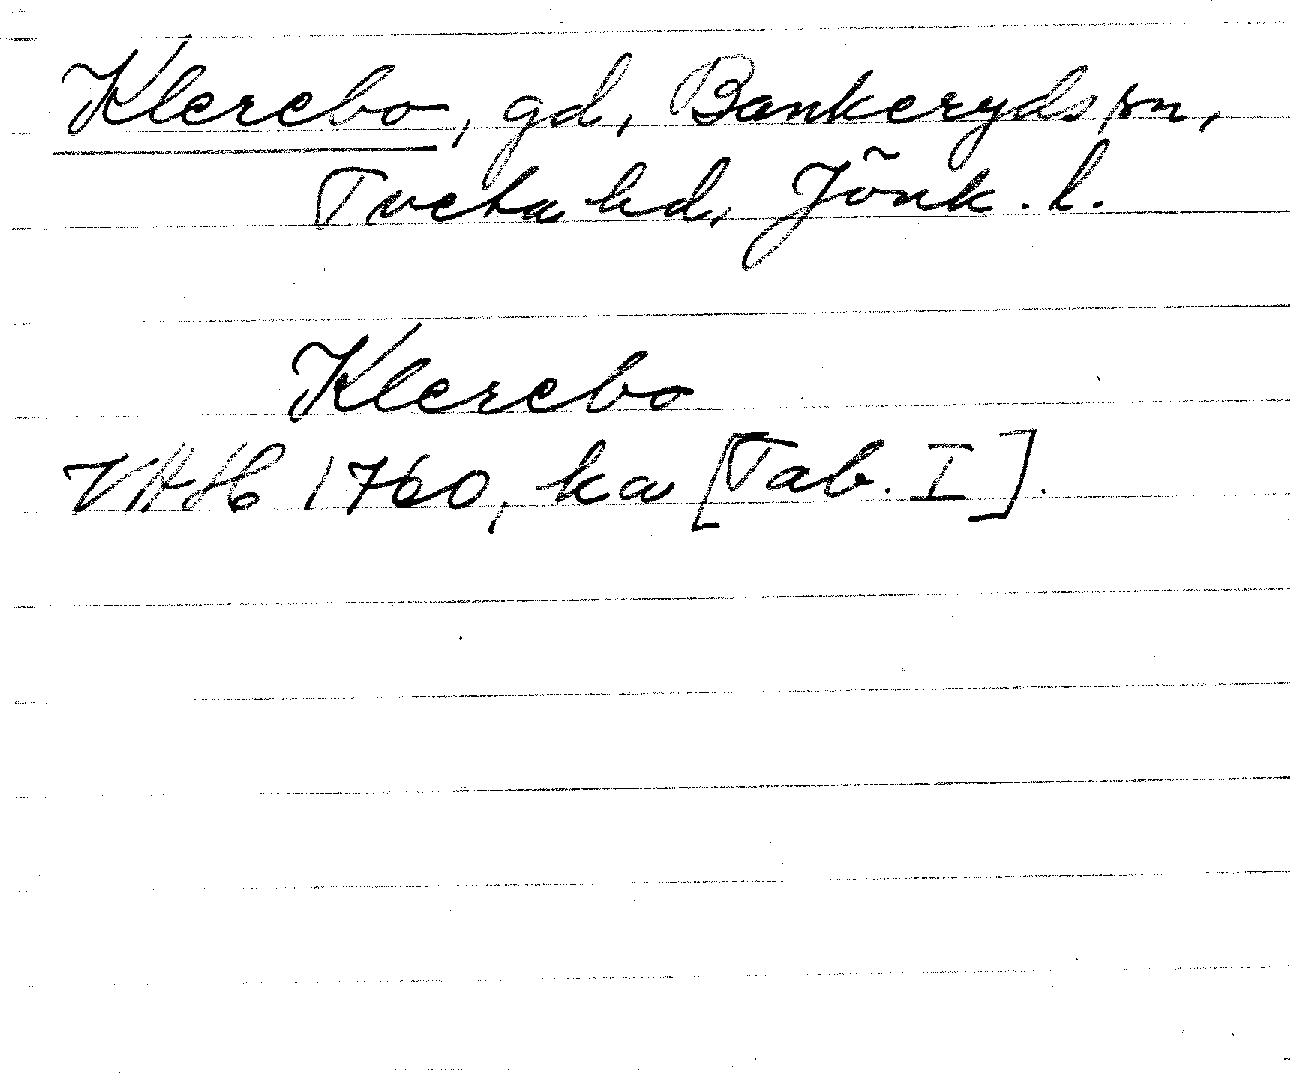 Klerebo, gd, Bankeryds sn,
Tveta hd, Jönk. l.
Klerebo
VAH 1760, ka [Tab. I].